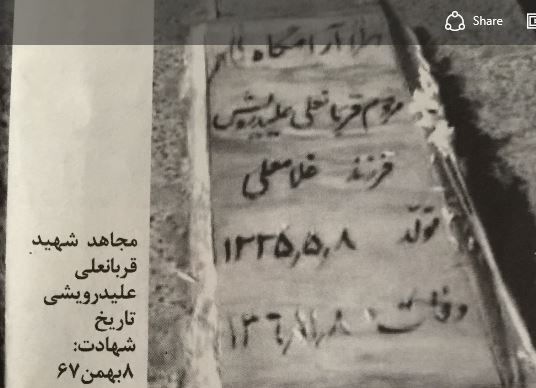 Share
آرامگاه
مرحوم قربانعلی علیدرویش
فرزند غلامعلی
تولد ۱۳۳۵٫۵٫۸
وفات
مجاهد شهید
قربانعلی
علیدرویشی
تاریخ
شهادت:
۸بهمن۶۷